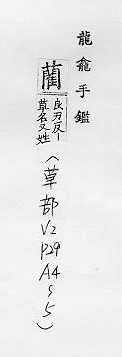 龍龕手鑑
藺
良刃反―
草名又姓
(草部
V2
P29
A4
S5)